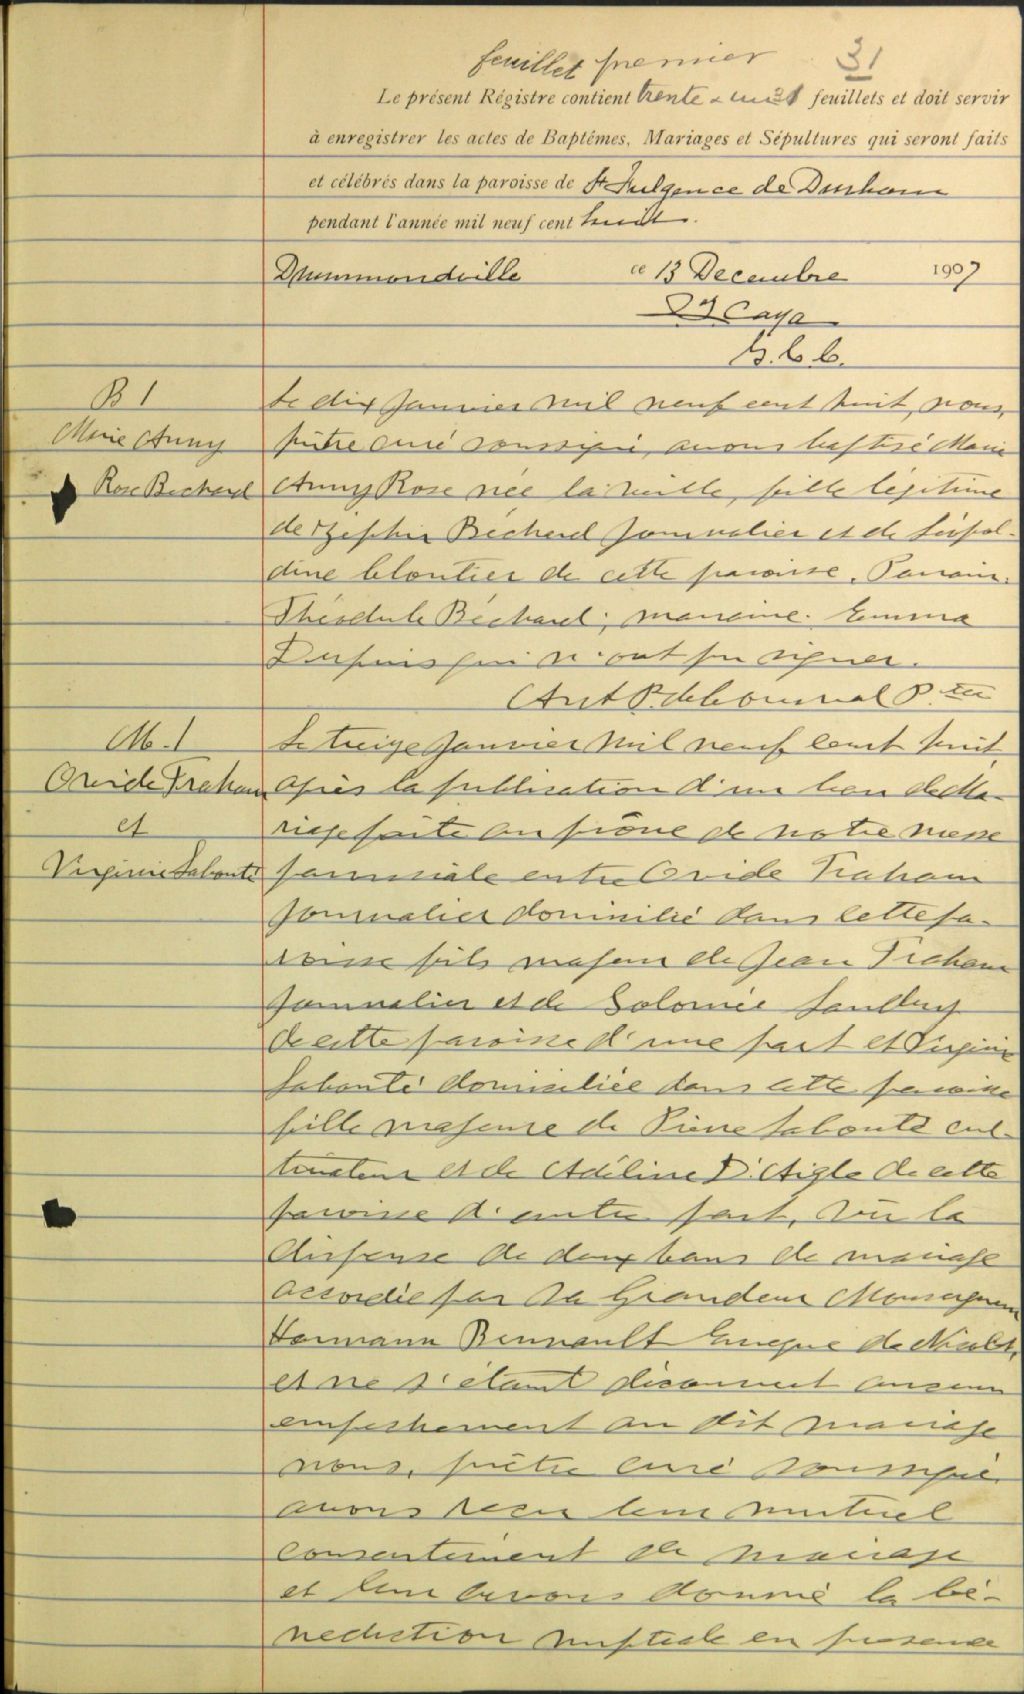 feuillet premier 31
Le présent Régistre contient trente & un 31 feuillets et doit servir
à enregistrer les actes de Baptêmes, Mariages et Sépultures qui seront faits
et célébrés dans la paroisse de St Fulgence de Durham
pendant l'année mil neuf cent huit.
Drummondville ce 13 Decembre 1907
Caya
G. C. C.
B 1
Marie Anny
Rose Bechard
Le dix Janvier mil neuf cent huit, nous,
prêtre curé soussigné, avons baptisé Marie
Anny Rose née la veille, fille légitime
de Zéphir Béchard journalier et de Léopol-
dine Cloutier de cette paroisse. Parrain:
Théodule Béchard; marraine: Emma
Dupuis qui n'ont pu signer.
Ant P. de Courval Ptre
M. 1
Ovide Traham
et
Virginie Labonté
Le treize Janvier mil neuf cent huit,
après la publication d'un ban de Ma-
riage faite au prône de notre messe
paroissiale entre Ovide Traham
journalier domicilié dans cette pa-
roisse fils majeur de Jean Traham
journalier et de Solomée
de cette paroisse d'une part et Virginie
Labonté domiciliée dans cette paroisse
fille majeure de Pierre Labonté cul-
tivateur et de Adéline D'Aigle de cette
paroisse d'autre part, vu la
dispense de deux bans de mariage
accordée par Sa Grandeur Monseigneur
Hermann Brunault Eveque de Nicolet,
et ne s'étant découvert aucun
empechement au dit mariage
nous, prêtre curé soussigné
avons recu leur mutuel
consentement de mariage
et leur avons donné la bé-
nediction nuptiale en presence